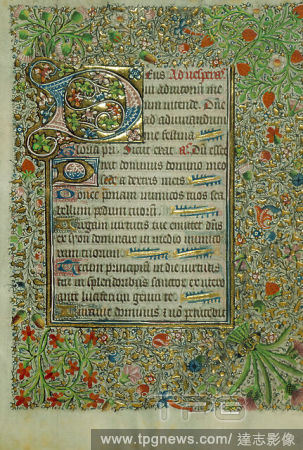 Deus Ad vesperas
in adiutoriū me
um intende. Dñe
ad adiuvandum
me festina
Gloria pri. Sicut erat. añ. Dū esset
Dixit dominus domino meo
sede a dextris meis
Donec ponam inimicos tuos sca
bellum pedum tuorū
Virgam virtutis tue emittet dñs
ex syon dominare in medio inimico
rum tuorum
Tecum principiū in die virtutis
tue in splendoribus sanctorū ex utero
ante luciferum genui te
Iuravit dominus & nō penitebit
TPG
www.tpgnews.com/ 達志影像